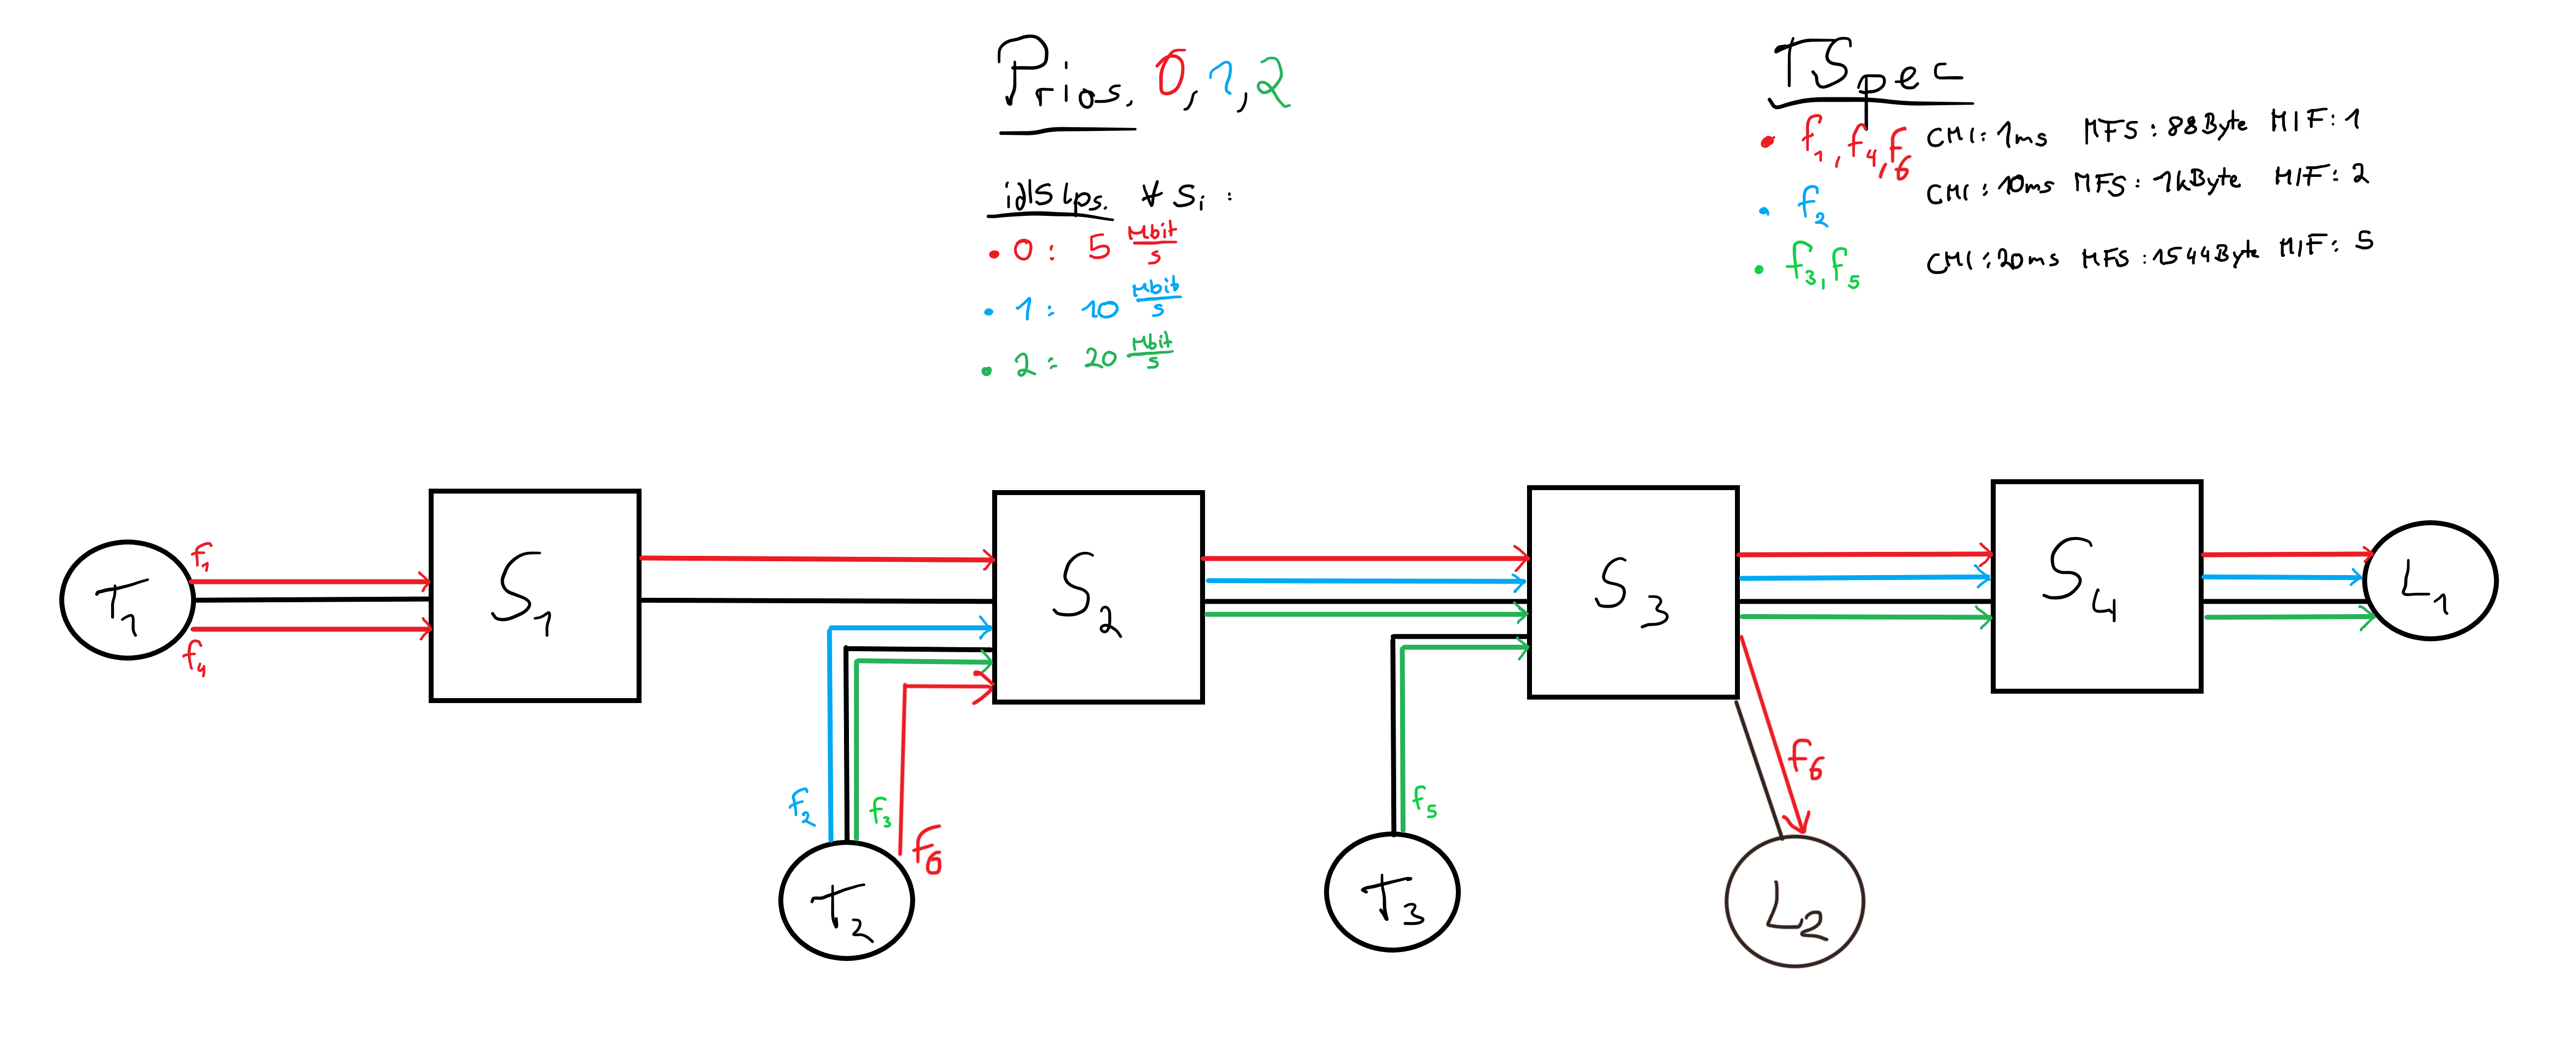 Prios. 0, 1, 2
idlSlps. ∀ Si :
• 0 : 5 Mbit/s
• 1 : 10 Mbit/s
• 2 : 20 Mbit/s
TSpec
• f1, f4, f6 CMI: 1ms MFS: 88Byte MIF: 1
• f2 CMI: 10ms MFS: 1kByte MIF: 2
• f3, f5 CMI: 20ms MFS: 1544Byte MIF: 5
f1
T1
f4
S1
S2
S3
S4
L1
f2
f3
f6
T2
f5
T3
f6
L2